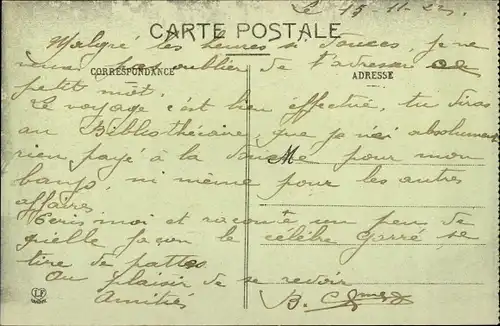 Le 15-11-22.
CARTE POSTALE
Malgré les heures si douces, je ne
veux pas oublier de t'adresser ce
CORRESPONDANCE
ADRESSE
petit mot.
Le voyage c'est bien effectué, tu diras
au Bibliothécaire, que je n'ai absolument
rien payé à la pour mon
M
banjo, ni même pour les autres
affaires
Ecris moi et raconte un peu de
quelle façon le célèbre Garré se
tire de
Au plaisir de se revoir
Amitiés B.
LF